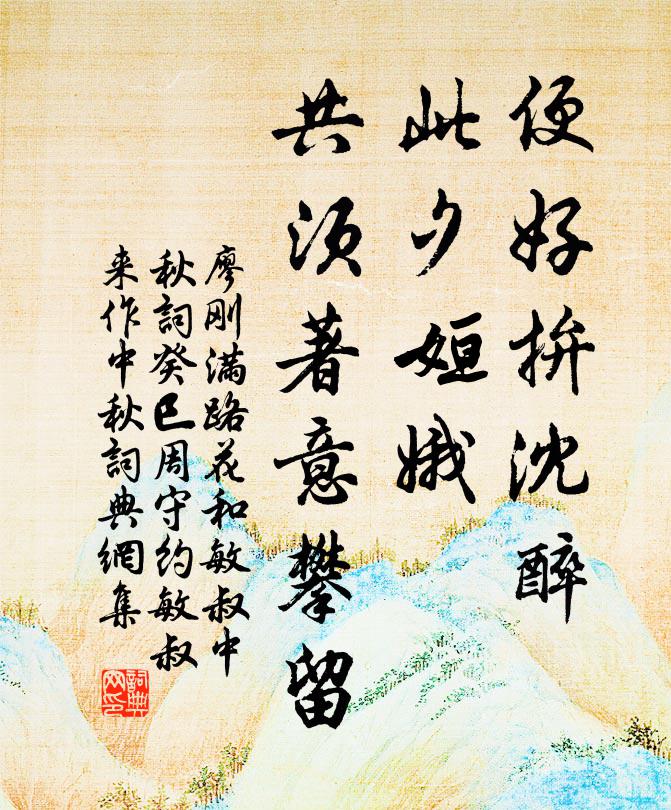 便好拚沈醉
此夕姮娥
共须著意攀留
廖刚满路花和敏叔中
秋詞癸巳周守约敏叔
来作中秋詞典網集
詞典
网印